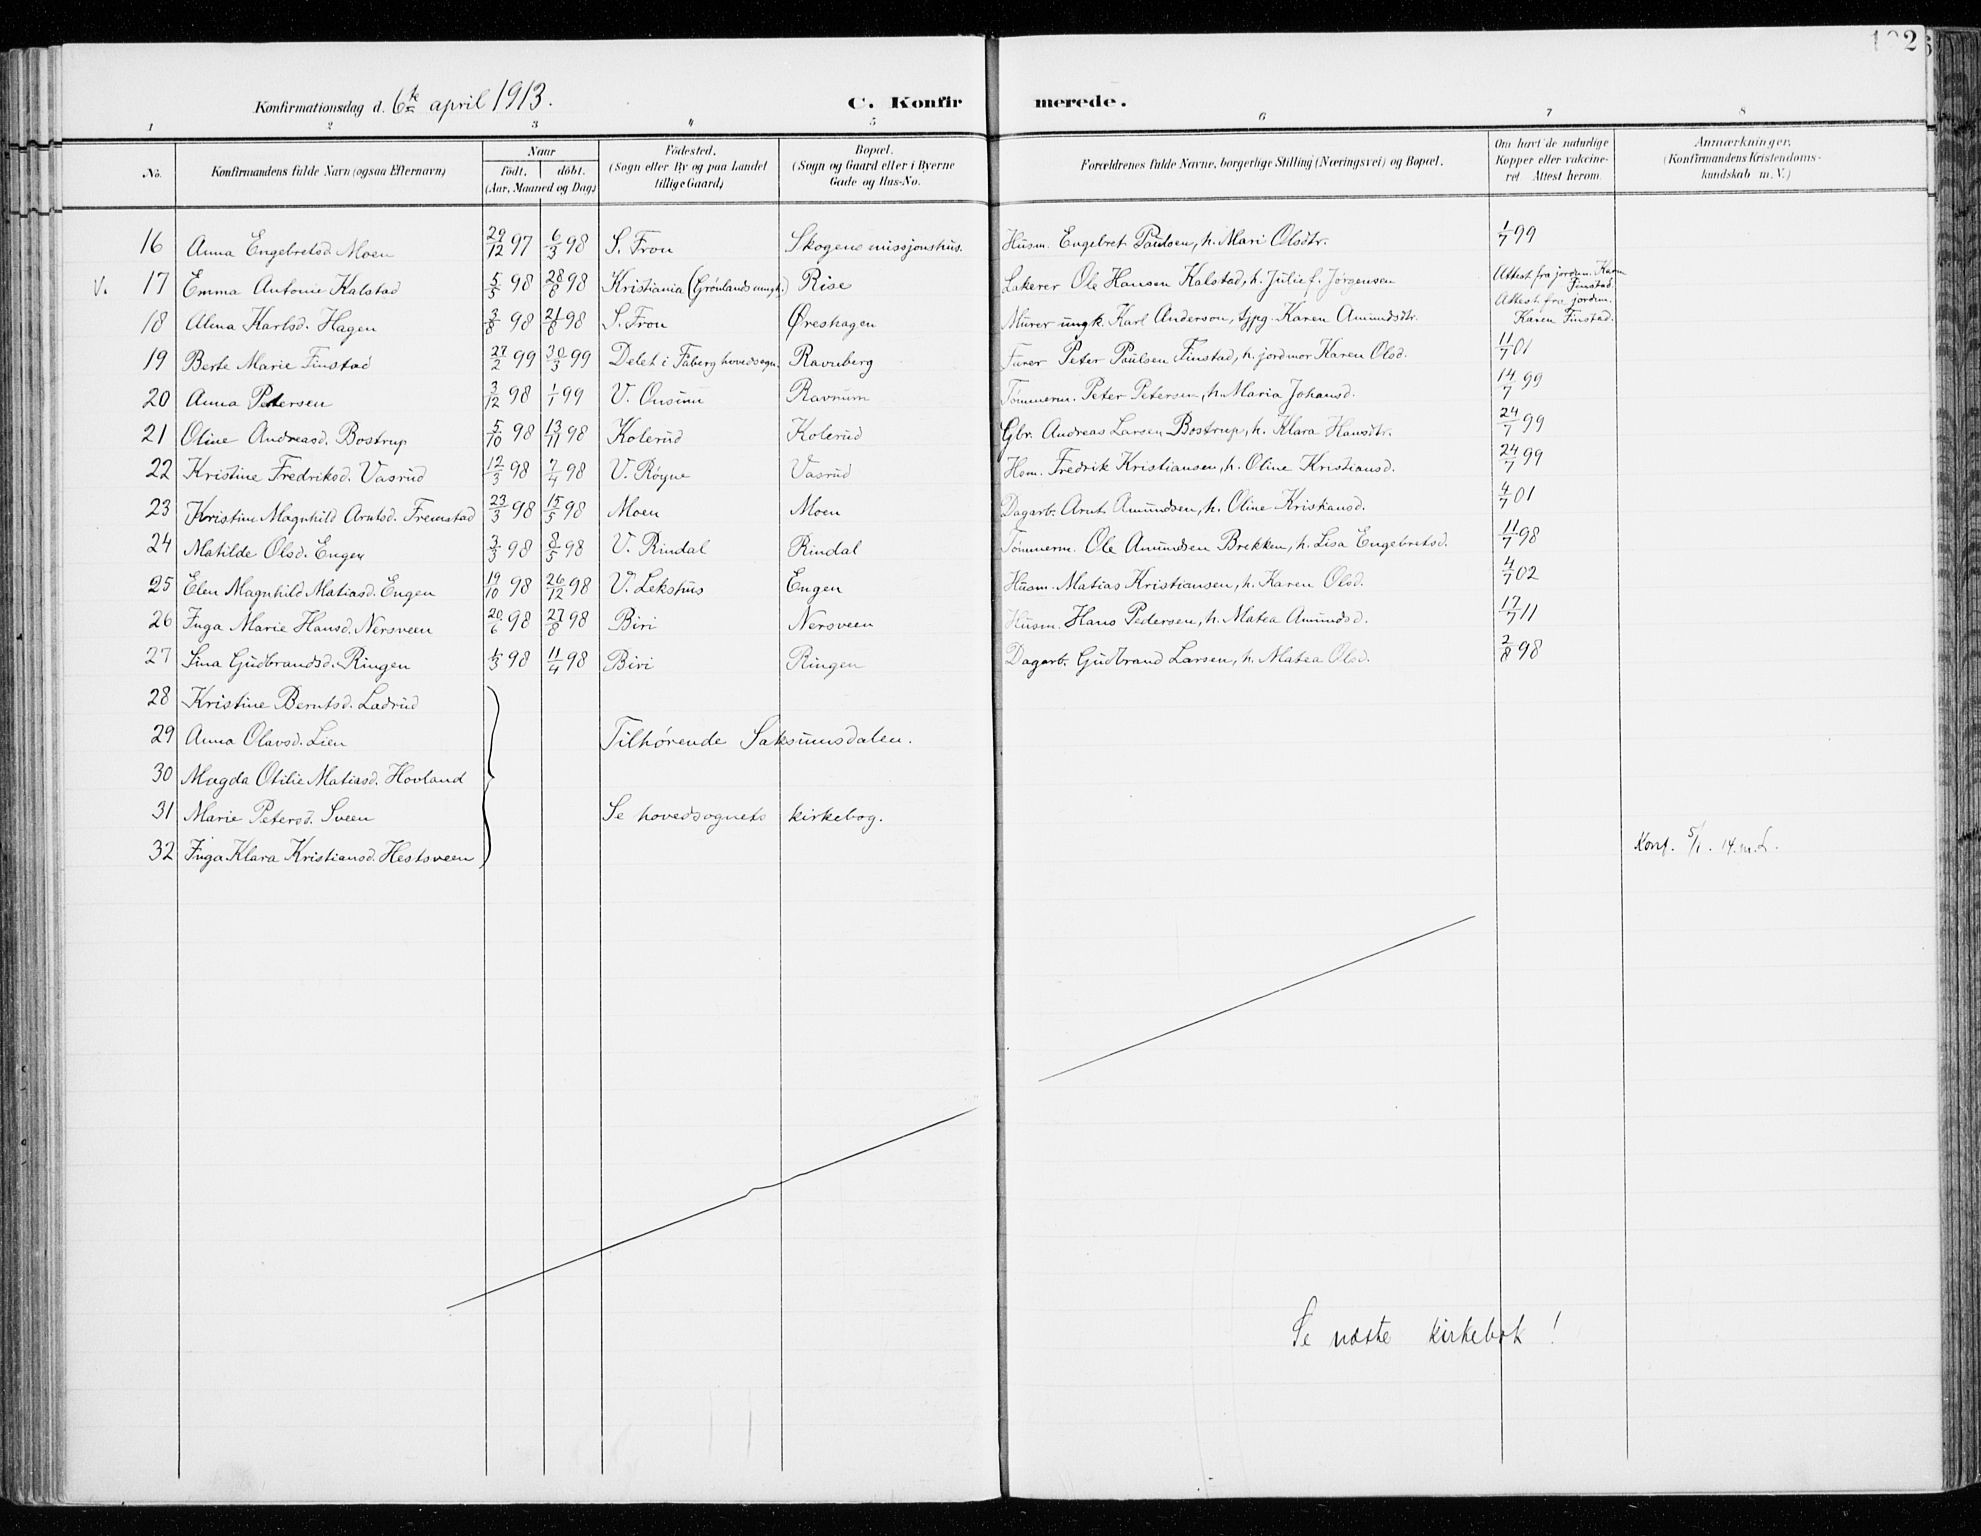 2
Konfirmationsdag d. 6te april 1913. C. Konfirmerede.
1 2 3 4 5 6 7 8
No. Konfirmandens fulde Navn (ogsaa Efternavn) Naar födt. döbt. (Aar, Maaned og Dag) Födested. (Sogn eller By og paa Landet tillige Gaard) Bopæl. (Sogn og Gaard eller i Byerne Gade og Hus-No. Forældrenes fulde Navne, borgerlige Stilling (Næringsvei) og Bopæl. Om havt de naturlige Kopper eller vakcineret. Attest herom. Anmærkninger, (Konfirmandens Kristendomskundskab m. V.)
16 Anna Engebretsd. Moen 29/12 97 6/3 98 S. Fron Skogens missjonshus. Husm. Engebret Paulsen, h. Mari Olsdtr. 1/7 99
V. 17 Emma Antonie Kalstad 5/5 98 28/8 98 Kristiania (Grønlands mngh.) Rise Lakerer Ole Hansen Kalstad, h. Julie f. Jørgensen Attest fra jordm. Karen Finstad.
18 Alma Karlsd. Hagen 3/8 98 21/8 98 S. Fron Øreshagen Murer ungk. Karl Anderson, tjpg. Karen Amundsdtr. Attest fra jordm. Karen Finstad.
19 Berte Marie Finstad 27/2 99 30/3 99 Delet i Fåberg hovedsogn. Ravnberg Furer Peter Paulsen Finstad, h. jordmor Karen Olsd. 11/7 01
20 Anna Petersen 3/12 98 1/1 99 V. Onsum Ravnum Tømmerm. Peter Petersen, h. Maria Johansd. 14/7 99
21 Oline Andreasd. Bostrup 5/10 98 13/11 98 Kolerud Kolerud Gbr. Andreas Larsen Bostrup, h. Klara Hansdtr. 24/7 99
22 Kristine Fredriksd. Vasrud 12/3 98 7/4 98 V. Røyne Vasrud Hsm. Fredrik Kristiansen, h. Oline Kristiansd. 24/7 99
23 Kristine Magnhild Arntsd. Fremstad 23/3 98 15/5 98 Moen Moen Dagarb. Arnt Amundsen, h. Oline Kristiansd. 4/7 01
24 Matilde Olsd. Engen 3/3 98 8/5 98 V. Rindal Rindal Tømmerm. Ole Amundsen Brekken, h. Lisa Engebretsd. 11/7 98
25 Elen Magnhild Matiasd. Engen 19/10 98 26/12 98 V. Lekshus Engen Husm. Matias Kristiansen, h. Karen Olsd. 4/7 02
26 Inga Marie Hansd. Nersveen 20/6 98 27/8 98 Biri Nersveen Husm. Hans Pedersen, h. Matea Amundsd. 17/7 11
27 Sina Gudbrandsd. Ringen 1/3 98 11/4 98 Biri Ringen Dagarb. Gudbrand Larsen, h. Matea Olsd. 2/8 98
28 Kristine Berntsd. Ladrud
29 Anna Olavsd. Lien Tilhørende Saksumsdalen.
30 Magda Otilie Matiasd. Hovland
31 Marie Petersd. Sveen Se hovedsognets kirkebog.
32 Inga Klara Kristiansd. Hestsveen Konf. 5/1. 14.
Se næste kirkebok!